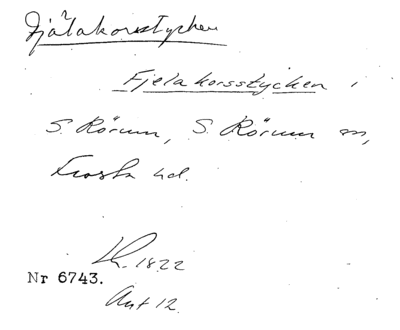 Fjälakorsstycken
Fjelakorsstycken i
S. Rörum, S. Rörum sn,
Frosta hd.
Lk. 1822
Nr 6743.
Akt 12.